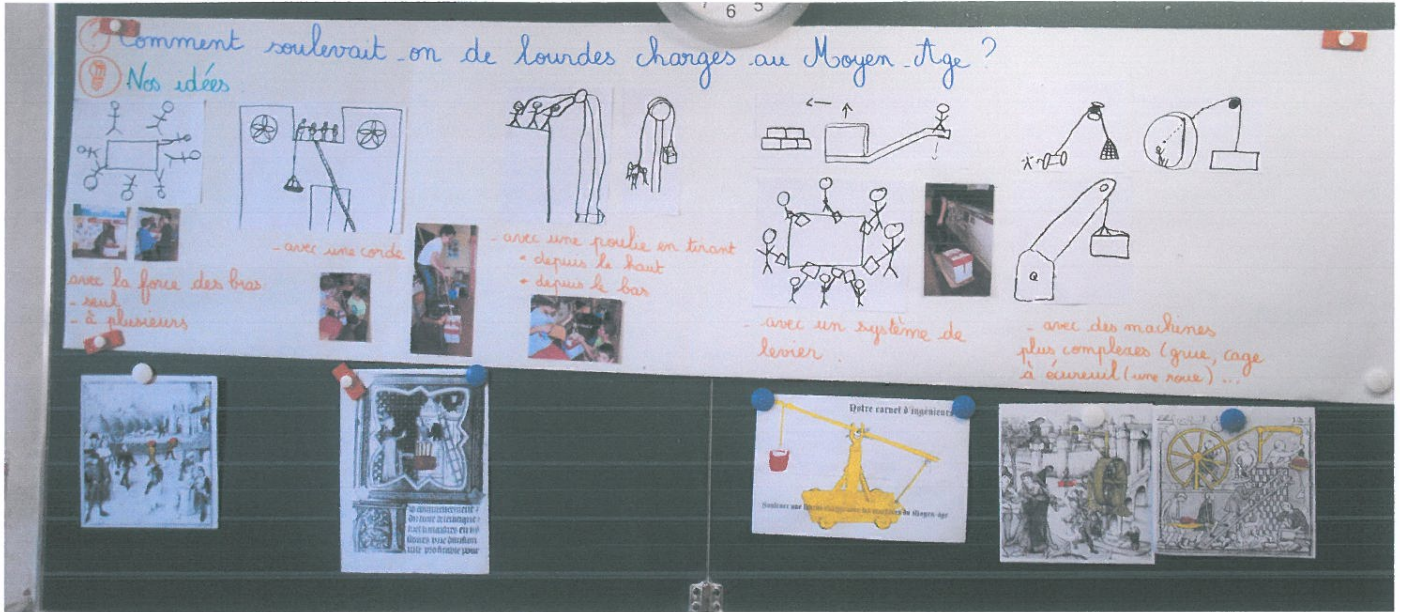 7 6 5
? Comment soulevait-on de lourdes charges au Moyen-Age ?
Nos idées
avec la force des bras
- seul
- à plusieurs
- avec une corde
- avec une poulie en tirant
• depuis le haut
• depuis le bas
- avec un système de
levier
- avec des machines
plus complexes (grue, cage
à écureuil (une roue) ...
Notre carnet d'ingénieurs
du Moyen-âge